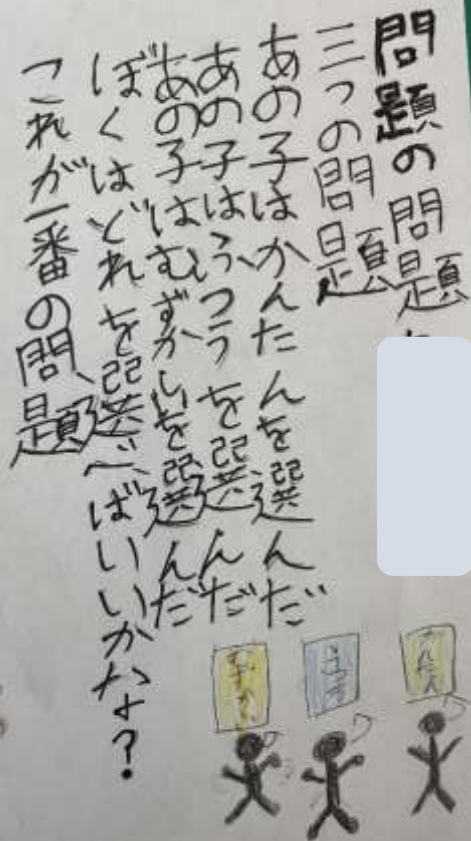 問題の問題
三つの問題
あの子はかんたんを選んだ
あの子はふつうを選んだ
あの子はむずかしいを選んだ
ぼくはどれを選べばいいかな？
これが一番の問題
かんたん
ふつう
むずかしい